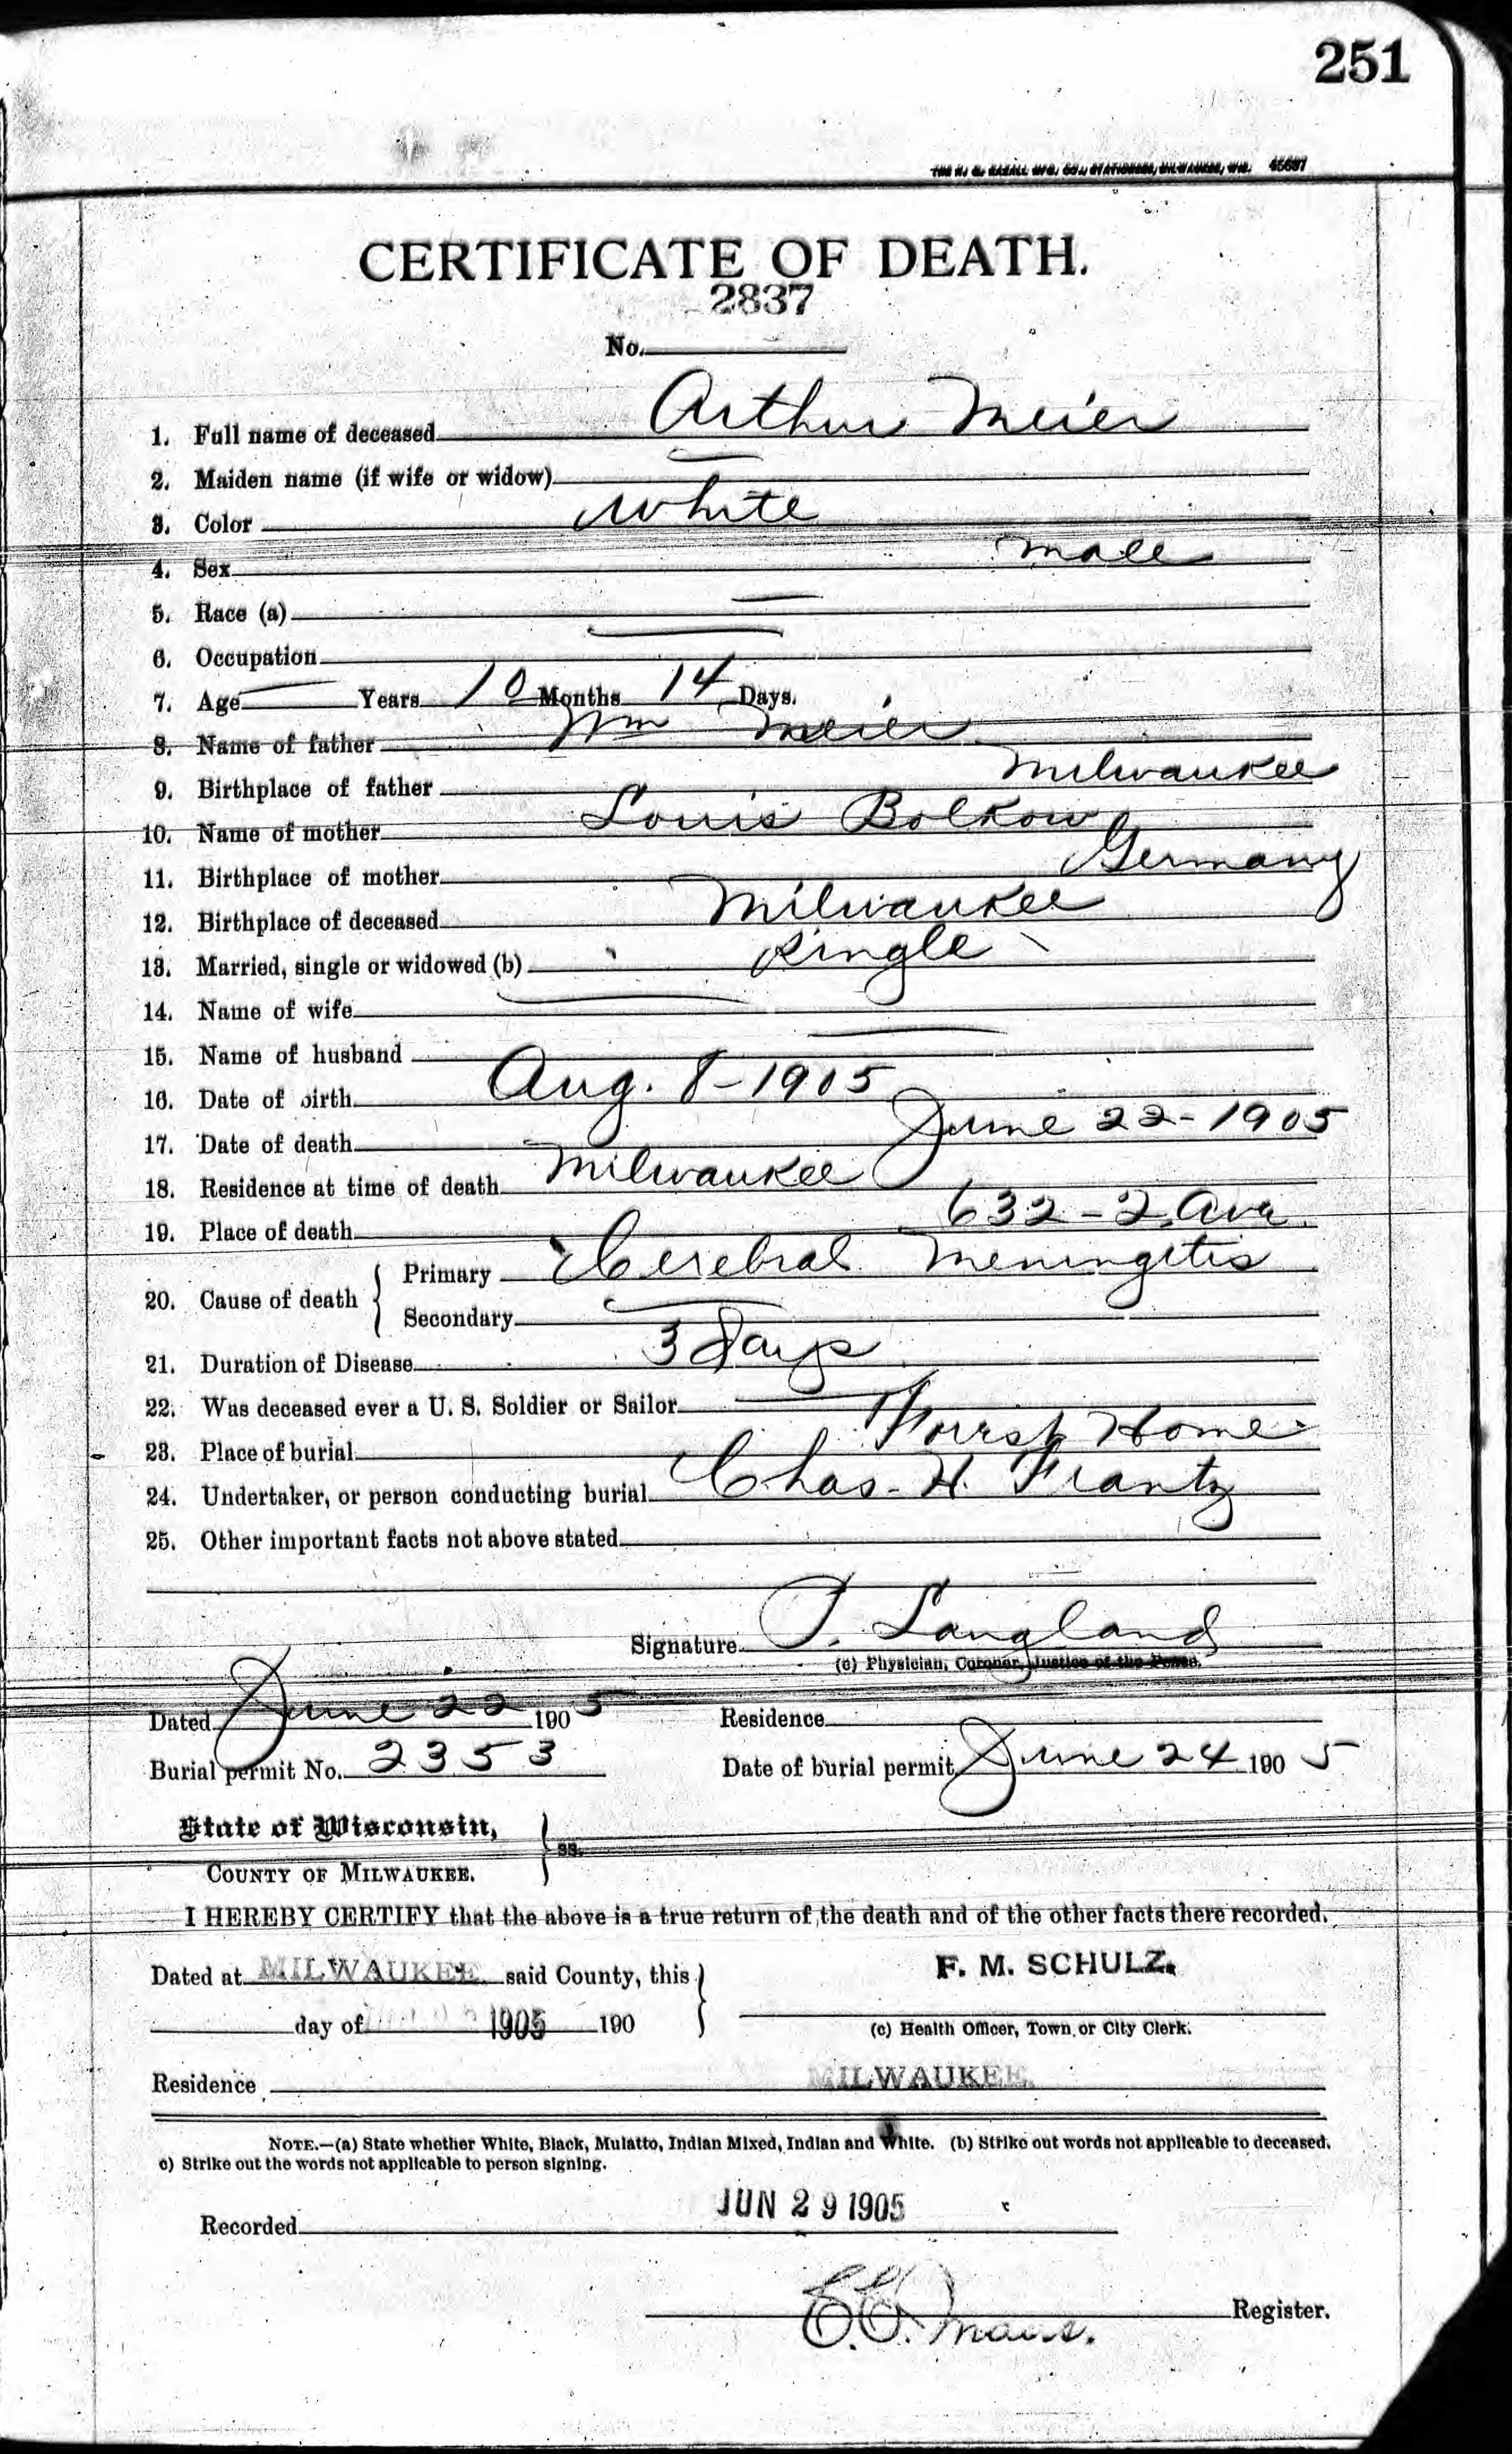 251
THE H. G. RAZALL MFG. CO., STATIONERS, MILWAUKEE, WIS. 45687
CERTIFICATE OF DEATH.
2837
No.
1. Full name of deceased Arthur Meier
2. Maiden name (if wife or widow) —
3. Color White
4. Sex male
5. Race (a) —
6. Occupation —
7. Age — Years 10 Months 14 Days.
8. Name of father Wm Meier
9. Birthplace of father Milwaukee
10. Name of mother Louis Bolkow
11. Birthplace of mother Germany
12. Birthplace of deceased Milwaukee
13. Married, single or widowed (b) Single
14. Name of wife —
15. Name of husband —
16. Date of birth Aug. 8-1905
17. Date of death June 22-1905
18. Residence at time of death Milwaukee
19. Place of death 632-2 Ave
20. Cause of death { Primary Cerebral Meningitis
Secondary —
21. Duration of Disease 3 days
22. Was deceased ever a U. S. Soldier or Sailor —
23. Place of burial Forrest Home
24. Undertaker, or person conducting burial Chas. H. Frantz
25. Other important facts not above stated
Signature P. Langland
(c) Physician, Coroner, Justice of the Peace.
Dated June 22 1905 Residence
Burial permit No. 2353 Date of burial permit June 24 1905
State of Wisconsin, } ss.
COUNTY OF MILWAUKEE.
I HEREBY CERTIFY that the above is a true return of the death and of the other facts there recorded.
Dated at MILWAUKEE said County, this } F. M. SCHULZ.
day of 1905 190 (c) Health Officer, Town or City Clerk.
Residence MILWAUKEE.
NOTE.—(a) State whether White, Black, Mulatto, Indian Mixed, Indian and White. (b) Strike out words not applicable to deceased.
c) Strike out the words not applicable to person signing.
Recorded JUN 29 1905
Register.